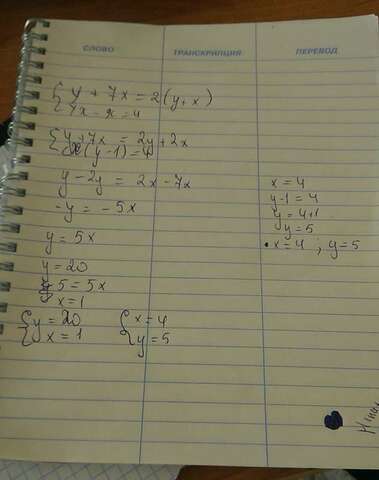 СЛОВО ТРАНСКРИПЦИЯ ПЕРЕВОД
{ y + 7x = 2(y+x)
yx - x = 4
{ y + 7x = 2y + 2x
x(y-1) = 4
y - 2y = 2x - 7x
-y = -5x
y = 5x
y = 20
5 = 5x
x = 1
{ y = 20
x = 1
{ x = 4
y = 5
x = 4
y-1 = 4
y = 4+1
y = 5
x = 4 ; y = 5